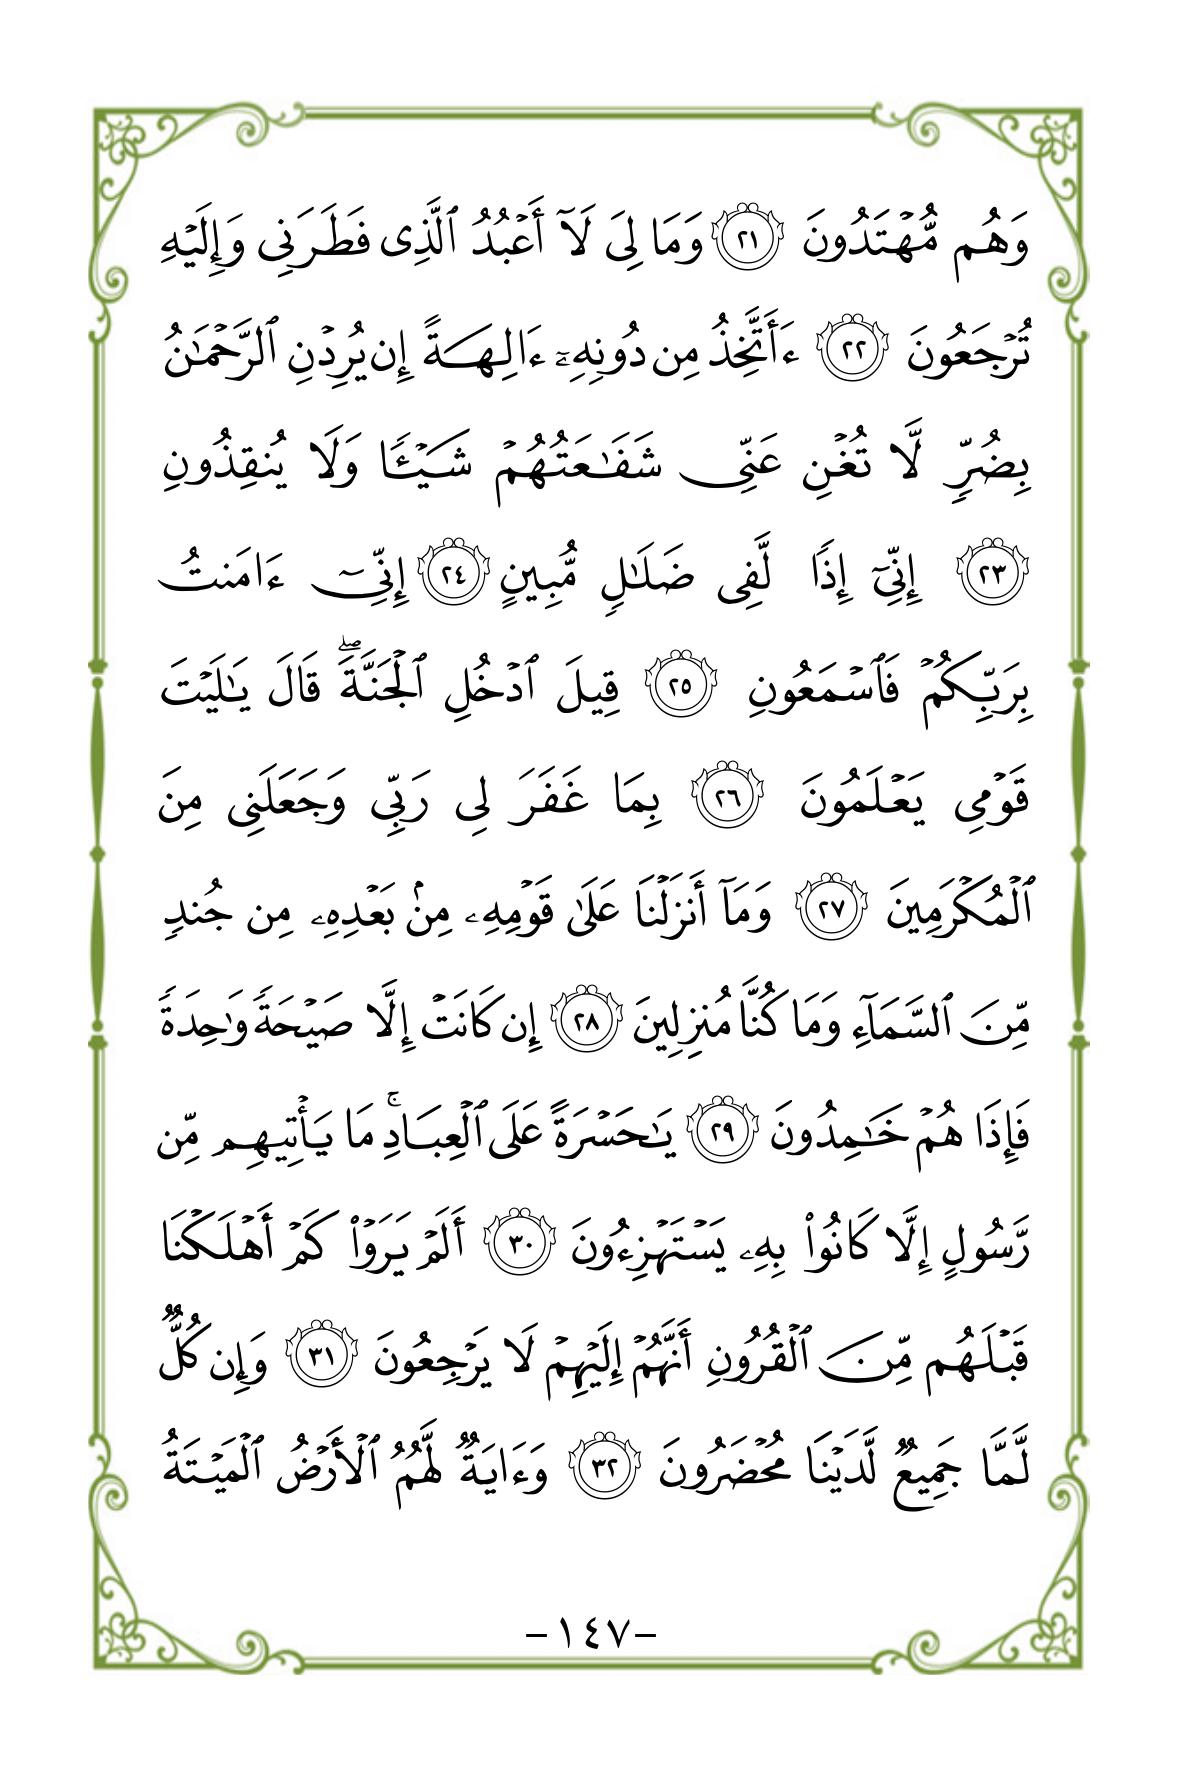 وَهُم مُّهۡتَدُونَ ٢١ وَمَا لِيَ لَآ أَعۡبُدُ ٱلَّذِي فَطَرَنِي وَإِلَيۡهِ
تُرۡجَعُونَ ٢٢ ءَأَتَّخِذُ مِن دُونِهِۦٓ ءَالِهَةً إِن يُرِدۡنِ ٱلرَّحۡمَٰنُ
بِضُرّٖ لَّا تُغۡنِ عَنِّي شَفَٰعَتُهُمۡ شَيۡـٔٗا وَلَا يُنقِذُونِ
٢٣ إِنِّيٓ إِذٗا لَّفِي ضَلَٰلٖ مُّبِينٍ ٢٤ إِنِّيٓ ءَامَنتُ
بِرَبِّكُمۡ فَٱسۡمَعُونِ ٢٥ قِيلَ ٱدۡخُلِ ٱلۡجَنَّةَۖ قَالَ يَٰلَيۡتَ
قَوۡمِي يَعۡلَمُونَ ٢٦ بِمَا غَفَرَ لِي رَبِّي وَجَعَلَنِي مِنَ
ٱلۡمُكۡرَمِينَ ٢٧ وَمَآ أَنزَلۡنَا عَلَىٰ قَوۡمِهِۦ مِنۢ بَعۡدِهِۦ مِن جُندٖ
مِّنَ ٱلسَّمَآءِ وَمَا كُنَّا مُنزِلِينَ ٢٨ إِن كَانَتۡ إِلَّا صَيۡحَةٗ وَٰحِدَةٗ
فَإِذَا هُمۡ خَٰمِدُونَ ٢٩ يَٰحَسۡرَةً عَلَى ٱلۡعِبَادِۚ مَا يَأۡتِيهِم مِّن
رَّسُولٍ إِلَّا كَانُواْ بِهِۦ يَسۡتَهۡزِءُونَ ٣٠ أَلَمۡ يَرَوۡاْ كَمۡ أَهۡلَكۡنَا
قَبۡلَهُم مِّنَ ٱلۡقُرُونِ أَنَّهُمۡ إِلَيۡهِمۡ لَا يَرۡجِعُونَ ٣١ وَإِن كُلّٞ
لَّمَّا جَمِيعٞ لَّدَيۡنَا مُحۡضَرُونَ ٣٢ وَءَايَةٞ لَّهُمُ ٱلۡأَرۡضُ ٱلۡمَيۡتَةُ
-١٤٧-